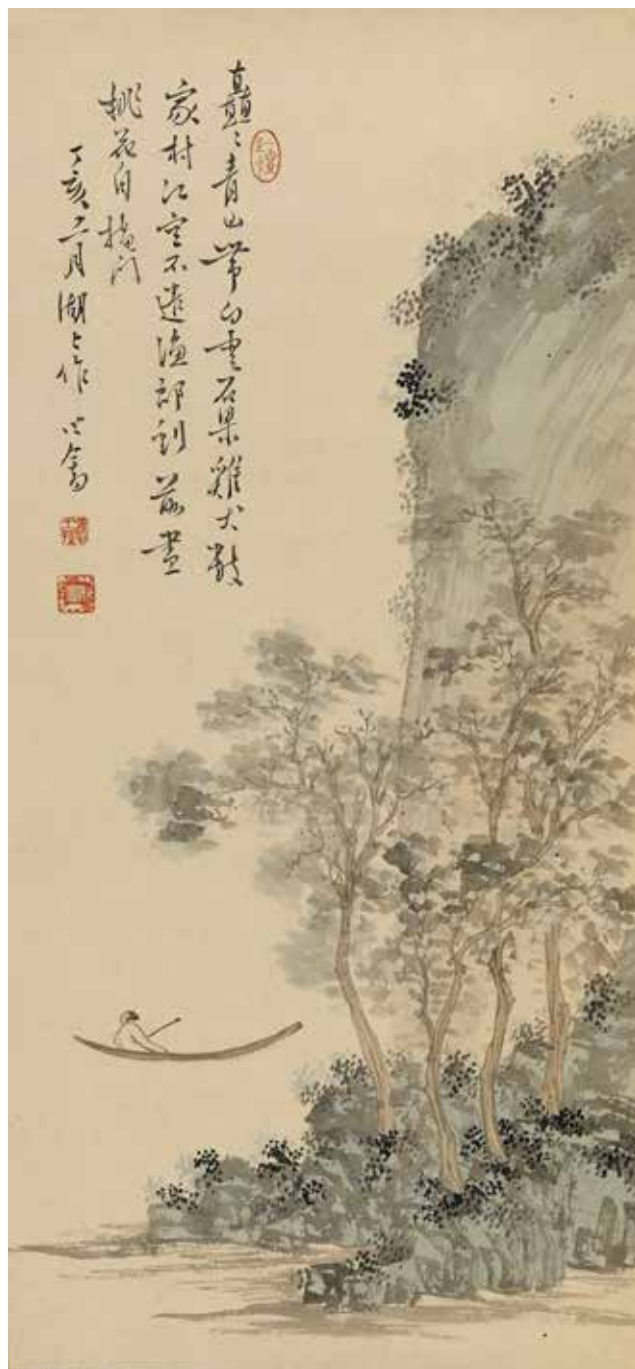 矗〻青山帶白雲石梁雞犬數
家村江空不遣漁郎到落盡
桃花自掩門
丁亥二月湖上作 心畬